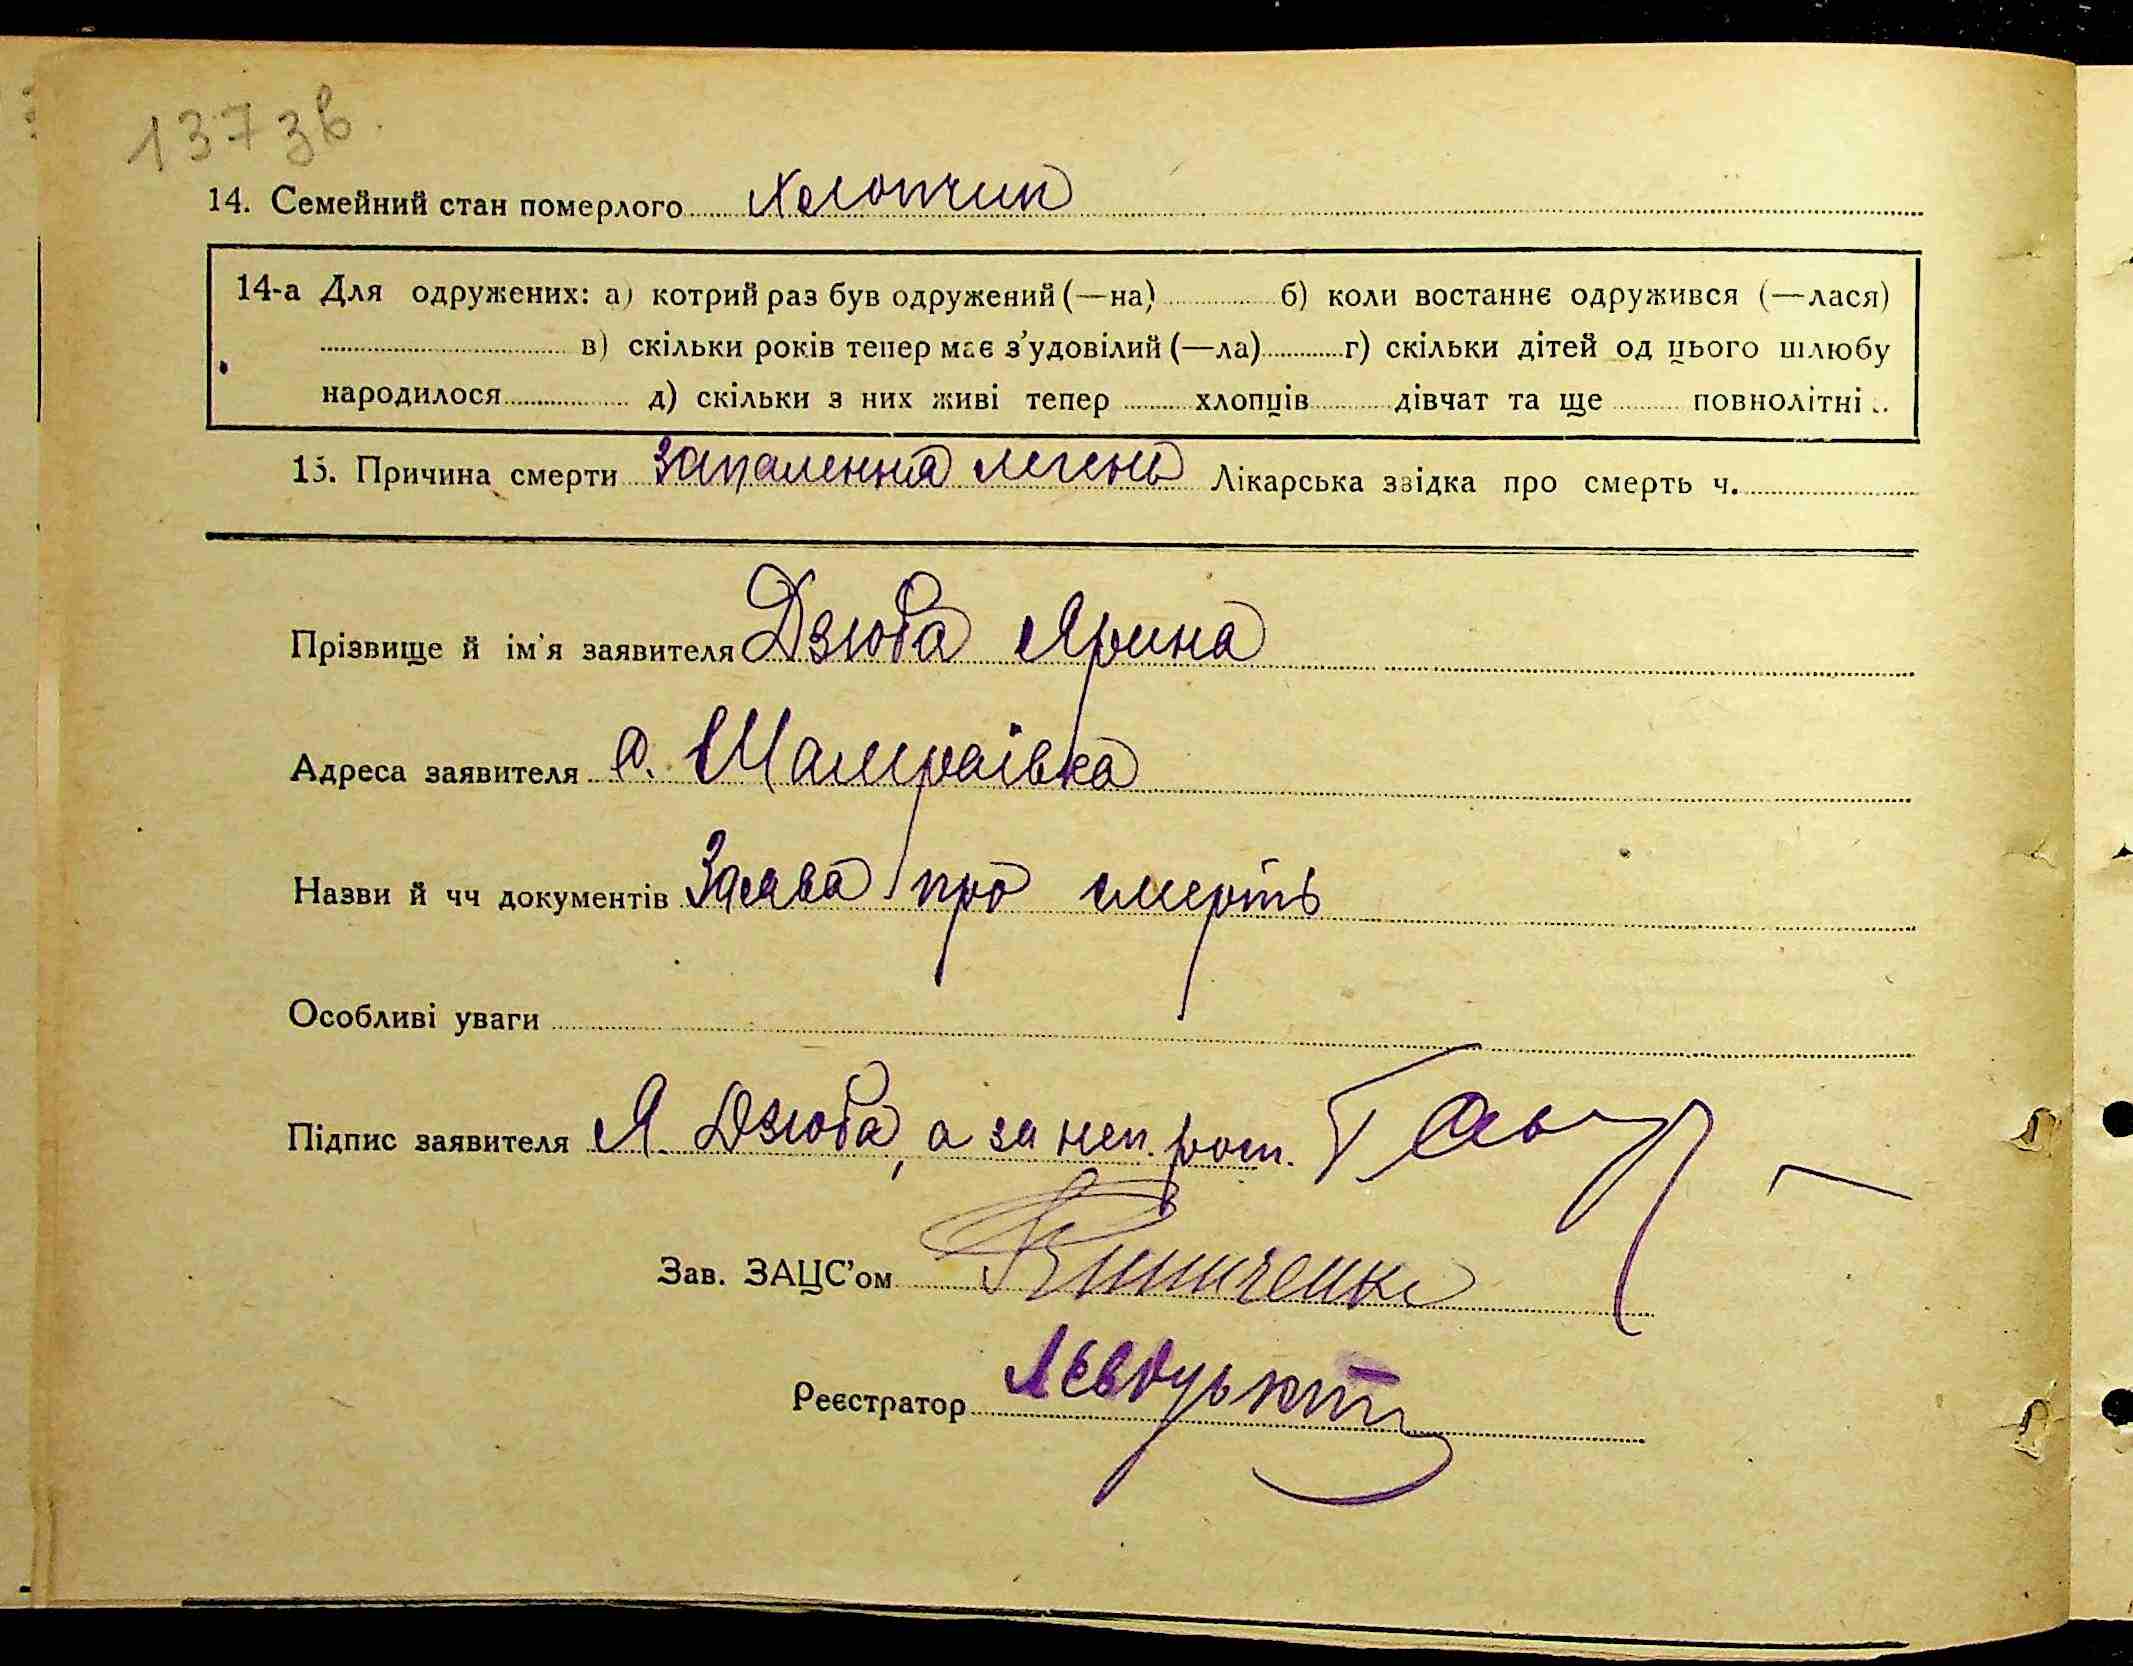 137 зв.
14. Семейний стан померлого Хлопчик
14-а Для одружених: а) котрий раз був одружений (—на) б) коли востаннє одружився (—лася)
в) скільки років тепер має з’удовілий (—ла) г) скільки дітей од цього шлюбу
народилося д) скільки з них живі тепер хлопців дівчат та ще повнолітні
15. Причина смерти Запалення легень Лікарська звідка про смерть ч.
Прізвище й ім'я заявителя Дзюба Ярина
Адреса заявителя с. Шамраївка
Назви й чч документів Заява про смерть
Особливі уваги
Підпис заявителя Я. Дзюба, а за неп. рос.
Зав. ЗАЦС’ом
Реєстратор